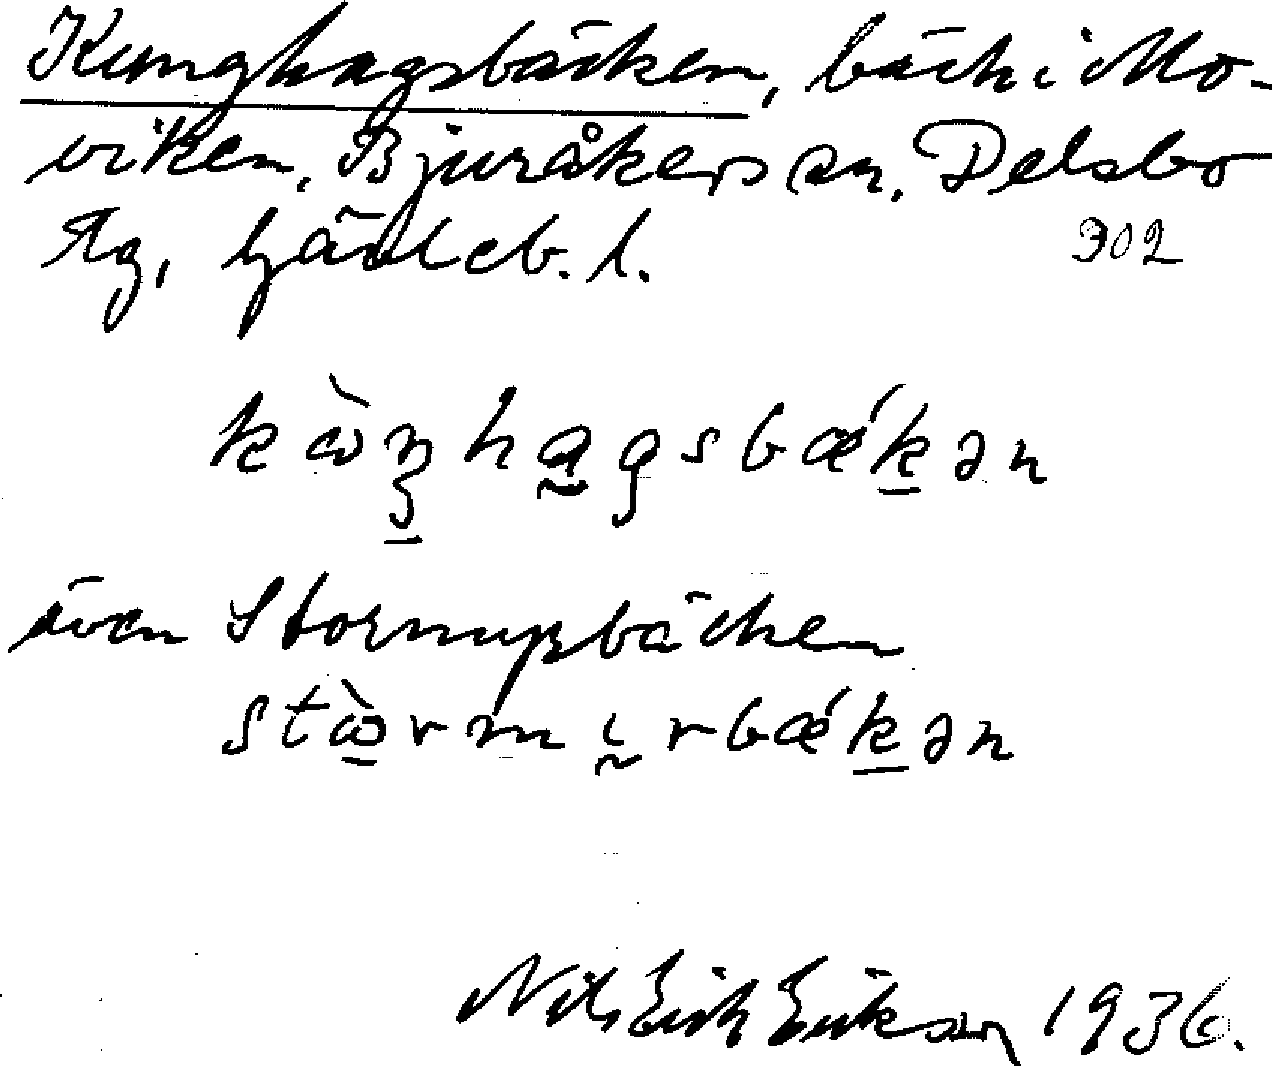 Kunghagsbäcken, bäck i Mo-
viken, Bjuråkers sn, Delsbo
tg, Gävleb. l. 302
kὼŋhagsbǽkən
även Stormyrbäcken
stὼrmɩrbǽkən
Nils Erik Erikson 1936.